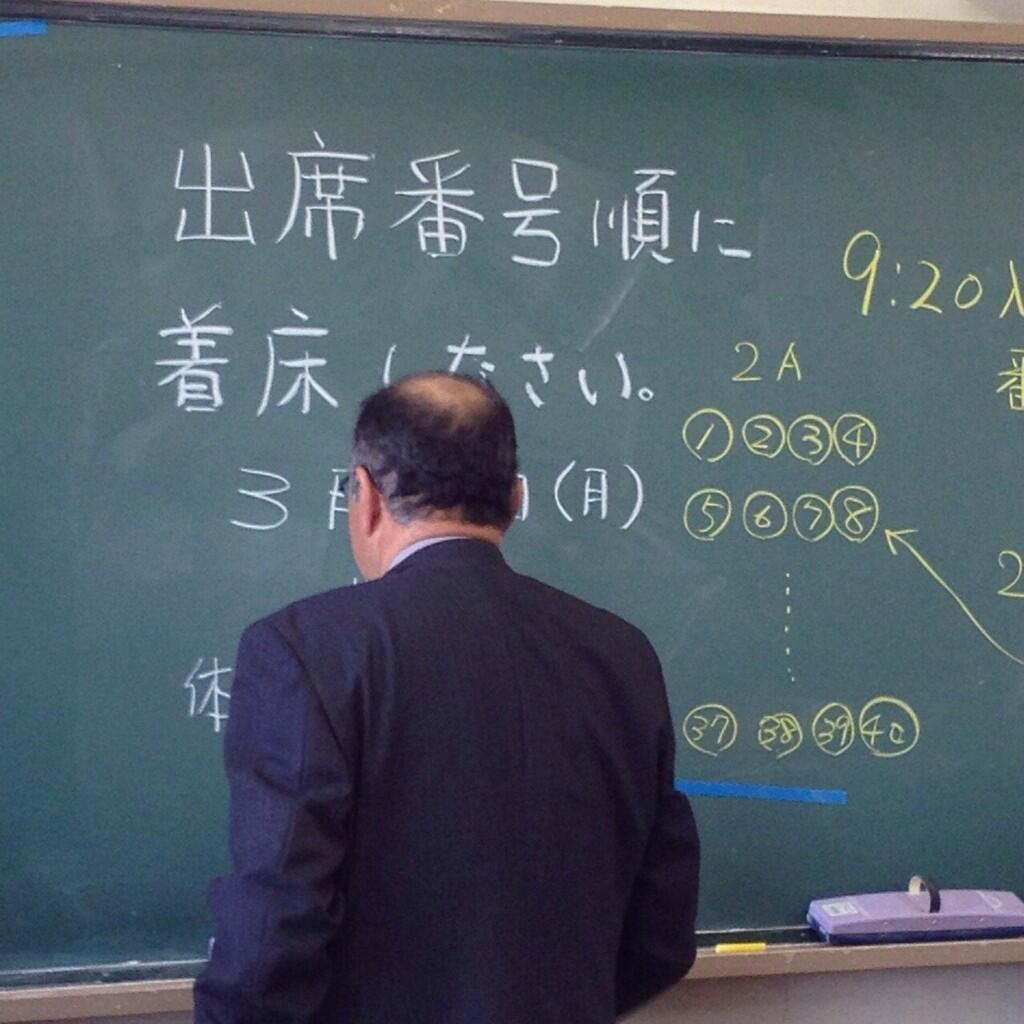 出席番号順に
着床ください。
3月 (月)
体
9:20入
番
2A
① ② ③ ④
⑤ ⑥ ⑦ ⑧
2
㊲ ㊳ ㊴ ㊵